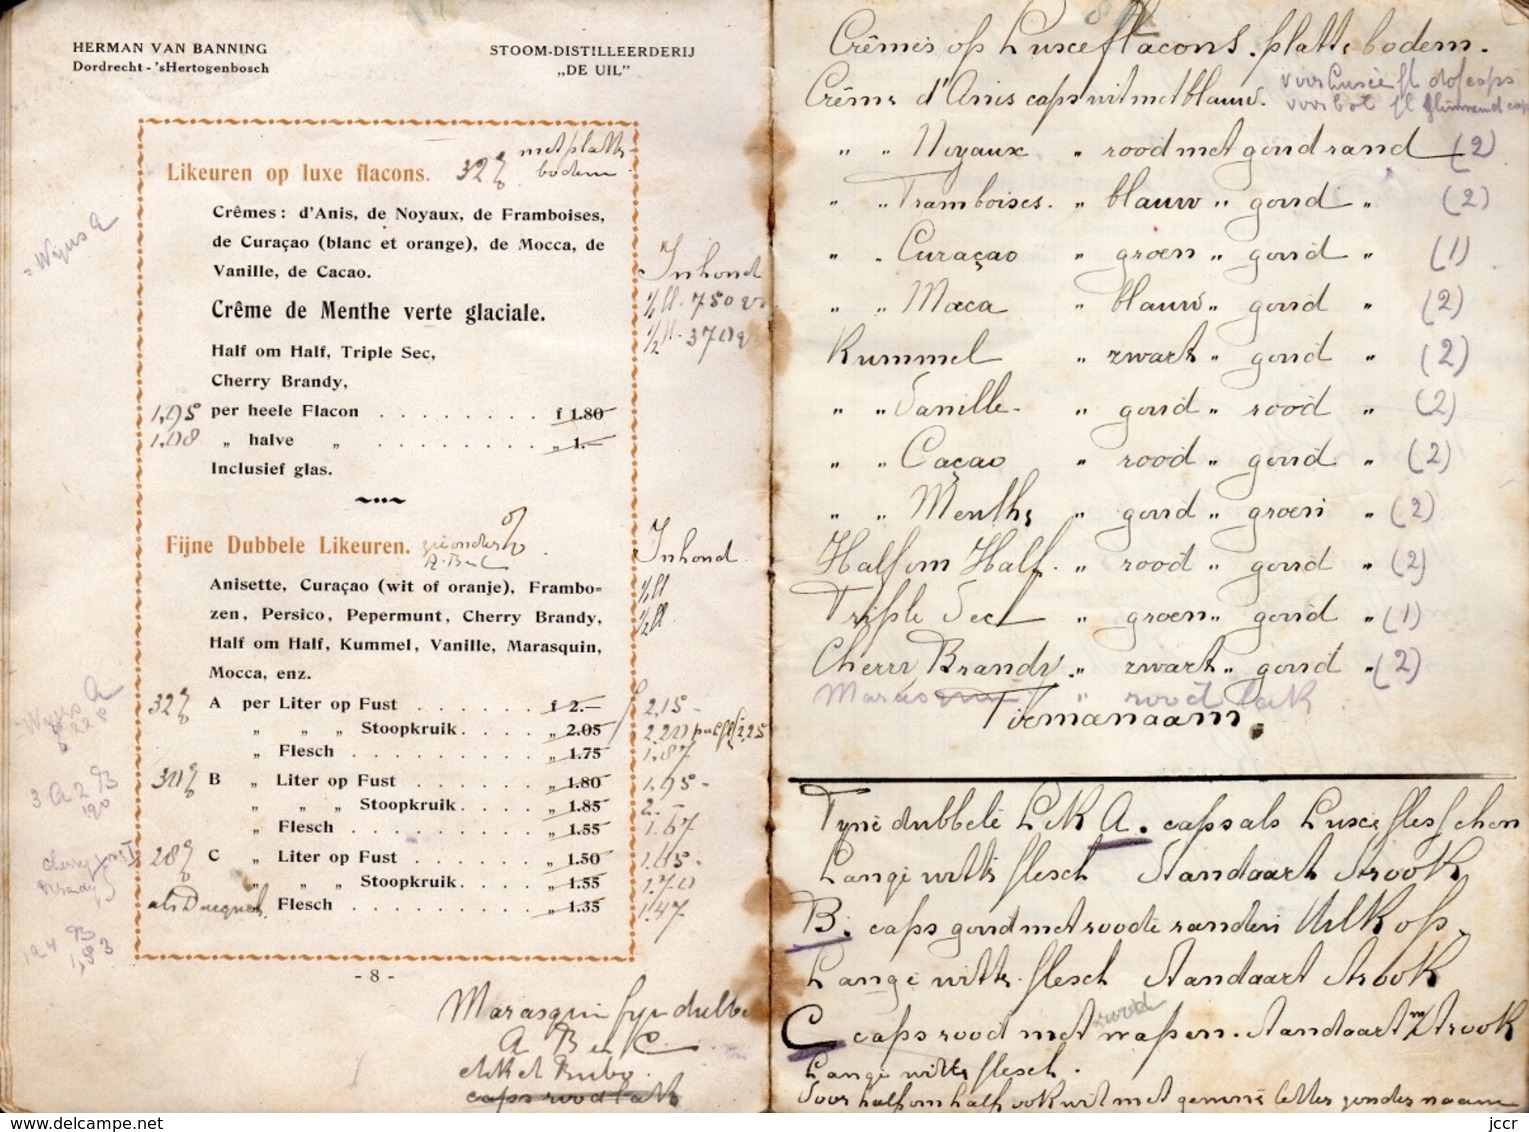 HERMAN VAN BANNING
Dordrecht - 'sHertogenbosch
STOOM-DISTILLEERDERIJ
„DE UIL”
Likeuren op luxe flacons. 32% met platte
bodem
Crêmes: d'Anis, de Noyaux, de Framboises,
de Curaçao (blanc et orange), de Mocca, de
Vanille, de Cacao.
Crême de Menthe verte glaciale.
Half om Half, Triple Sec,
Cherry Brandy,
1,95 per heele Flacon . . . . . . . . f 1.80
1,08 „ halve „ . . . . . . . . „ 1.—
Inclusief glas.
Inhoud
1/1 fl. 750
1/2 fl. 370
Fijne Dubbele Likeuren.
Anisette, Curaçao (wit of oranje), Frambo=
zen, Persico, Pepermunt, Cherry Brandy,
Half om Half, Kummel, Vanille, Marasquin,
Mocca, enz.
Inhoud
1/1 fl
1/2 fl.
32% A per Liter op Fust . . . . . . f 2.— 2,15 -
„ „ „ Stoopkruik . . . . „ 2.05 2,20 2,25
„ Flesch . . . . . . . . . „ 1.75 1.87
30% B „ Liter op Fust . . . . . . „ 1.80 1.95 -
„ „ „ Stoopkruik . . . . „ 1.85 2.—
„ Flesch . . . . . . . . . „ 1.55 1.67
28% C „ Liter op Fust . . . . . . „ 1.50 1.65 -
„ „ „ Stoopkruik . . . . „ 1.55 1.70
„ Flesch . . . . . . . . . „ 1.35 1.47
- 8 -
Marasquin fijn dubbe
A B en C.
etiket Bubo.
caps rood lak
Crêmes op Luxe flacons. platte bodem.
Crême d'Anis caps wit met blauw.
„ „ Noyaux „ rood met goud rand (2)
„ „ Framboises. „ blauw „ goud „ (2)
„ „ Curaçao „ groen „ goud „ (1)
„ „ Moca „ blauw „ goud „ (2)
Kummel „ zwart „ goud „ (2)
„ „ Vanille „ goud „ rood „ (2)
„ „ Caçao „ rood „ goud „ (2)
„ „ Menthe „ goud „ groen „ (2)
Half om Half. „ rood „ goud „ (2)
Triple Sec „ groen „ goud „ (1)
Cherry Brandy. „ zwart „ goud „ (2)
Marasquin „ rood lak
Firmanaam.
Fijne dubbele Lik A. caps als Luxe flesschen
Lange witte flesch Standaart Strook
B. caps goud met roode randen Uil K op.
Lange witte flesch Standaart Strook
C caps rood met wapen. Standaart Strook
Lange witte flesch.
Voor half om half ook wit met groene letters zonder naam
jccr